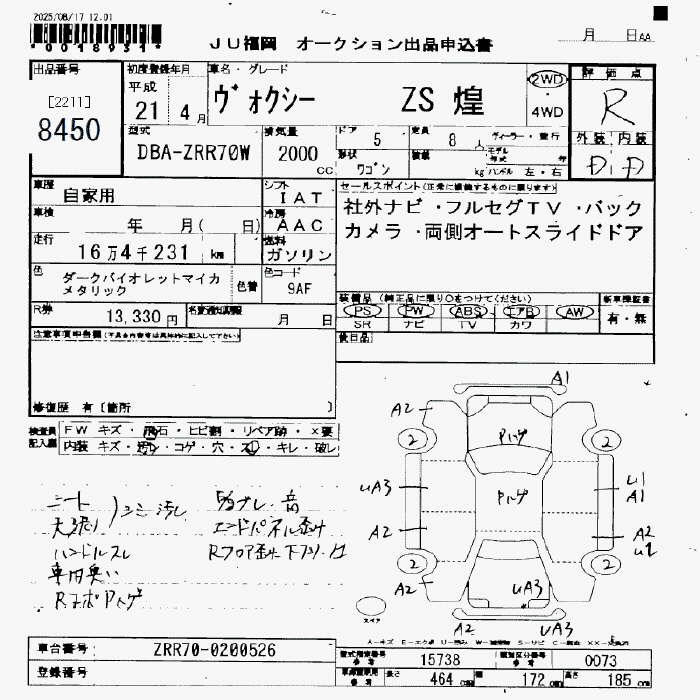 2025/08/17 12.01
*0048934*
JU福岡 オークション出品申込書
月 日AA
出品番号
[2211]
8450
初度登録年月
平成
21 4月
車名・グレード
ヴォクシー ZS 煌
2WD
・
4WD
評価点
R
外装 内装
D D
型式
DBA-ZRR70W
排気量
2000
CC
ドア 5
定員 8 人
形状 ワゴン
積載 kg
ディーラー・並行
モデル年式 年
ハンドル 左・右
車歴
自家用
シフト
IAT
車検
年 月( 日)
冷房
AAC
走行
16万4千231 km
燃料
ガソリン
色
ダークバイオレットマイカ
メタリック
色替
色コード
9AF
R券
13,330 円
月 日
セールスポイント(正常に機能するものに限ります)
社外ナビ ・フルセグTV ・バック
カメラ ・両側オートスライドドア
装備品(純正品に限り○をつけてください)
PS PW ABS エアB AW
SR ナビ TV カワ
新車保証書
有・無
後日品
注意事項申告欄
修復歴 有〔箇所 〕
検査員
記入欄
FW キズ・飛石・ヒビ割・リペア跡・X要
内装 キズ・汚レ・コゲ・穴・スレ・キレ・破レ
シート
天張り
シミ汚レ
ハンドルスレ
車内臭い
エンドパネル歪み
A1
A2
2
2
Pハゲ
UA3
Pハゲ
U1
A1
A2
A2
U1
2
2
A2
UA3
A2
UA3
スペア
車台番号
ZRR70-0200526
登録番号
型式指定番号
参考
15738
類別区分番号
参考
0073
長さ 464 cm
幅 172 cm
高さ 185 cm